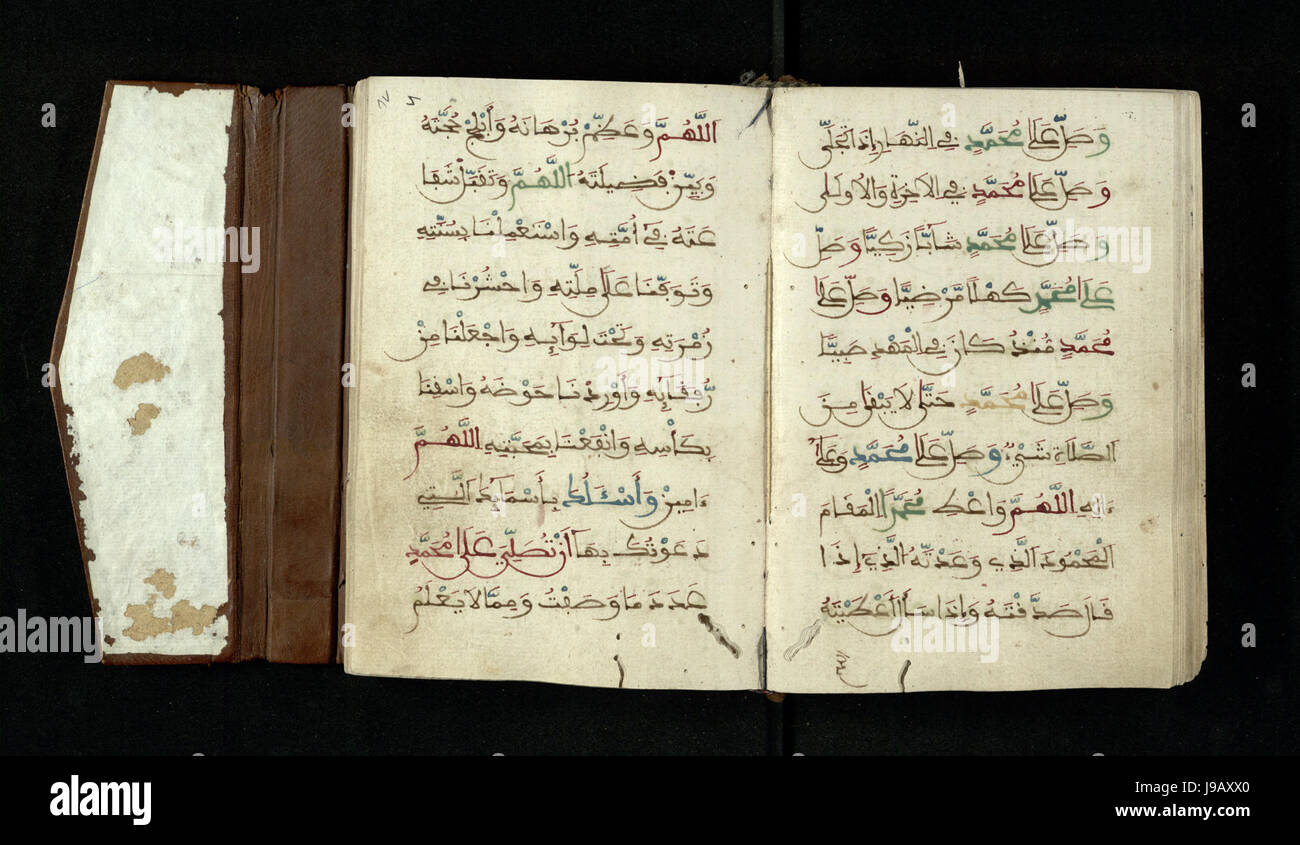 وَصَلِّ عَلَى مُحَمَّدٍ فِي النَّهَارِ إِذَا تَجَلَّى
وَصَلِّ عَلَى مُحَمَّدٍ فِي الاَخِرَةِ وَالاُولَى
وَصَلِّ عَلَى مُحَمَّدٍ شَابّاً زَكِيّاً وَصَلِّ
عَلَى مُحَمَّدٍ كَهْلاً مَّرْضِيّاً وَصَلِّ عَلَى
مُحَمَّدٍ مُّنْذُ كَانَ فِي الْمَهْدِ صَبِيّاً
وَصَلِّ عَلَى مُحَمَّدٍ حَتَّى لاَ يَبْقَى مِنَ
الصَّلاَةِ شَيْءٌ وَصَلِّ عَلَى مُحَمَّدٍ وَعَلَى
ءَالِهِ اللَّهُمَّ وَاعْطِ مُحَمَّداً الْمَقَامَ
الْمَحْمُودَ الَّذِي وَعَدْتَّهُ الَّذِي إِذَا
قَالَ صَدَّقْتَهُ وَإِذَا سَأَلَ أَعْطَيْتَهُ
اللهم
اللَّهُمَّ وَعَظِّمْ بُرْهَانَهُ وَأَبْلِجْ حُجَّتَهُ
وَبَيِّنْ فَضِيلَتَهُ اللَّهُمَّ وَتَقَبَّلْ شَفَا
عَتَهُ فِي أُمَّتِهِ وَاسْتَعْمِلْنَا بِسُنَّتِهِ
وَتَوَفَّنَا عَلَى مِلَّتِهِ وَاحْشُرْنَا فِي
زُمْرَتِهِ وَتَحْتَ لِوَآئِهِ وَاجْعَلْنَا مِنْ
رُّفَقَآئِهِ وَأَوْرِدْنَا حَوْضَهُ وَاسْقِنَا
بِكَأْسِهِ وَانْفَعْنَا بِمَحَبَّتِهِ اللَّهُمَّ
ءَامِينْ وَأَسْئَلُكَ بِأَسْمَآئِكَ الَّتِي
دَعَوْتُكَ بِهَا أَنْ تُصَلِّيَ عَلَى مُحَمَّدٍ
عَدَدَ مَا وَصَفْتُ وَمِمَّا لاَ يَعْلَمُ
alamy
Image ID: J9AXX0
www.alamy.com